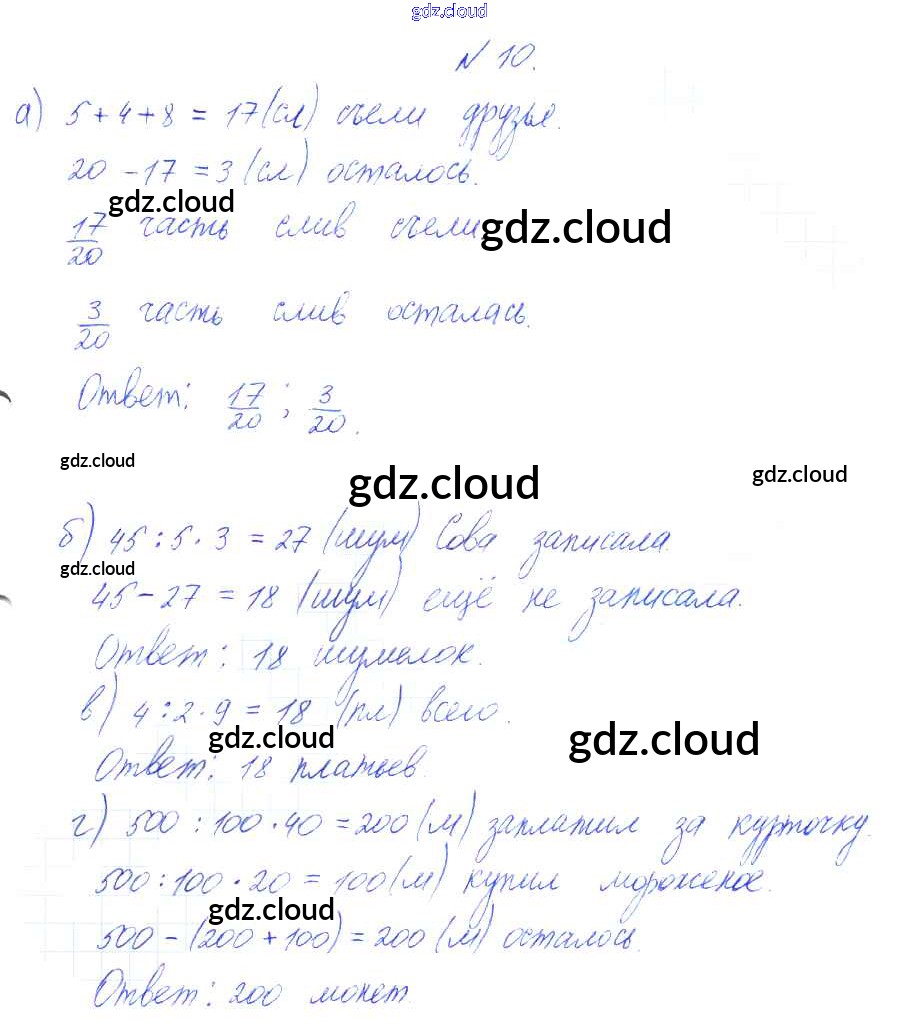 gdz.cloud
N 10.
а) 5 + 4 + 8 = 17 (сл) съели друзья.
20 - 17 = 3 (сл) осталось.
gdz.cloud
17/20 часть слив съели gdz.cloud
3/20 часть слив осталась.
Ответ: 17/20 ; 3/20.
gdz.cloud gdz.cloud gdz.cloud
б) 45 : 5 · 3 = 27 (шум) Сова записала.
gdz.cloud
45 - 27 = 18 (шум) ещё не записала.
Ответ: 18 шумелок.
в) 4 : 2 · 9 = 18 (пл) всего.
gdz.cloud gdz.cloud
Ответ: 18 платьев.
г) 500 : 100 · 40 = 200 (м) заплатил за курточку.
500 : 100 · 20 = 100 (м) купил мороженое.
gdz.cloud
500 - (200 + 100) = 200 (м) осталось.
Ответ: 200 монет